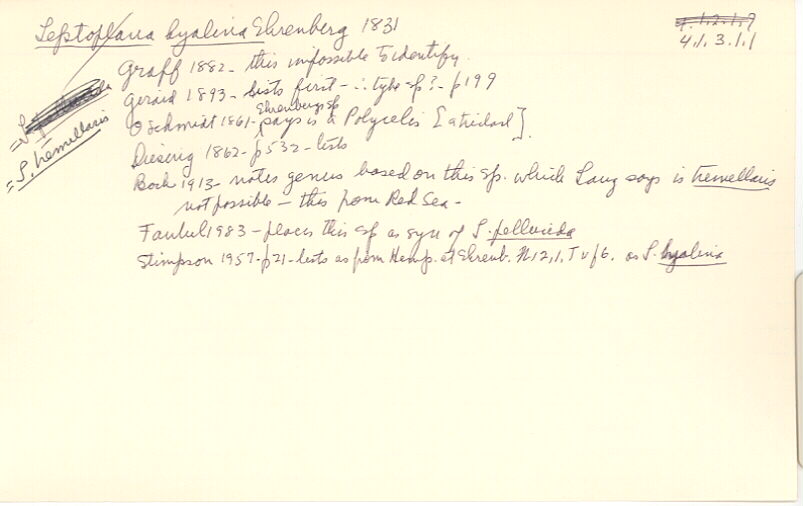 Leptoplana hyalina Ehrenberg 1831
4.1.2.1.9
4.1.3.1.1
Graff 1882 - this impossible to identify.
Gerard 1893 - lists first - ∴ type sp? - p 199
O Schmidt 1861 - Ehrenberg sp says is a Polycelis [a triclad].
Diesing 1862 - p 532 - lists
Bock 1913 - notes genus based on this sp. which Lang says is tremellaris
not possible - this from Red Sea -
Faubel 1983 - places this sp as syn of S. pellucida
Stimpson 1957 - p 21 - lists as from Hemp. et Ehrenb. as L. hyalina
= L. tremellaris